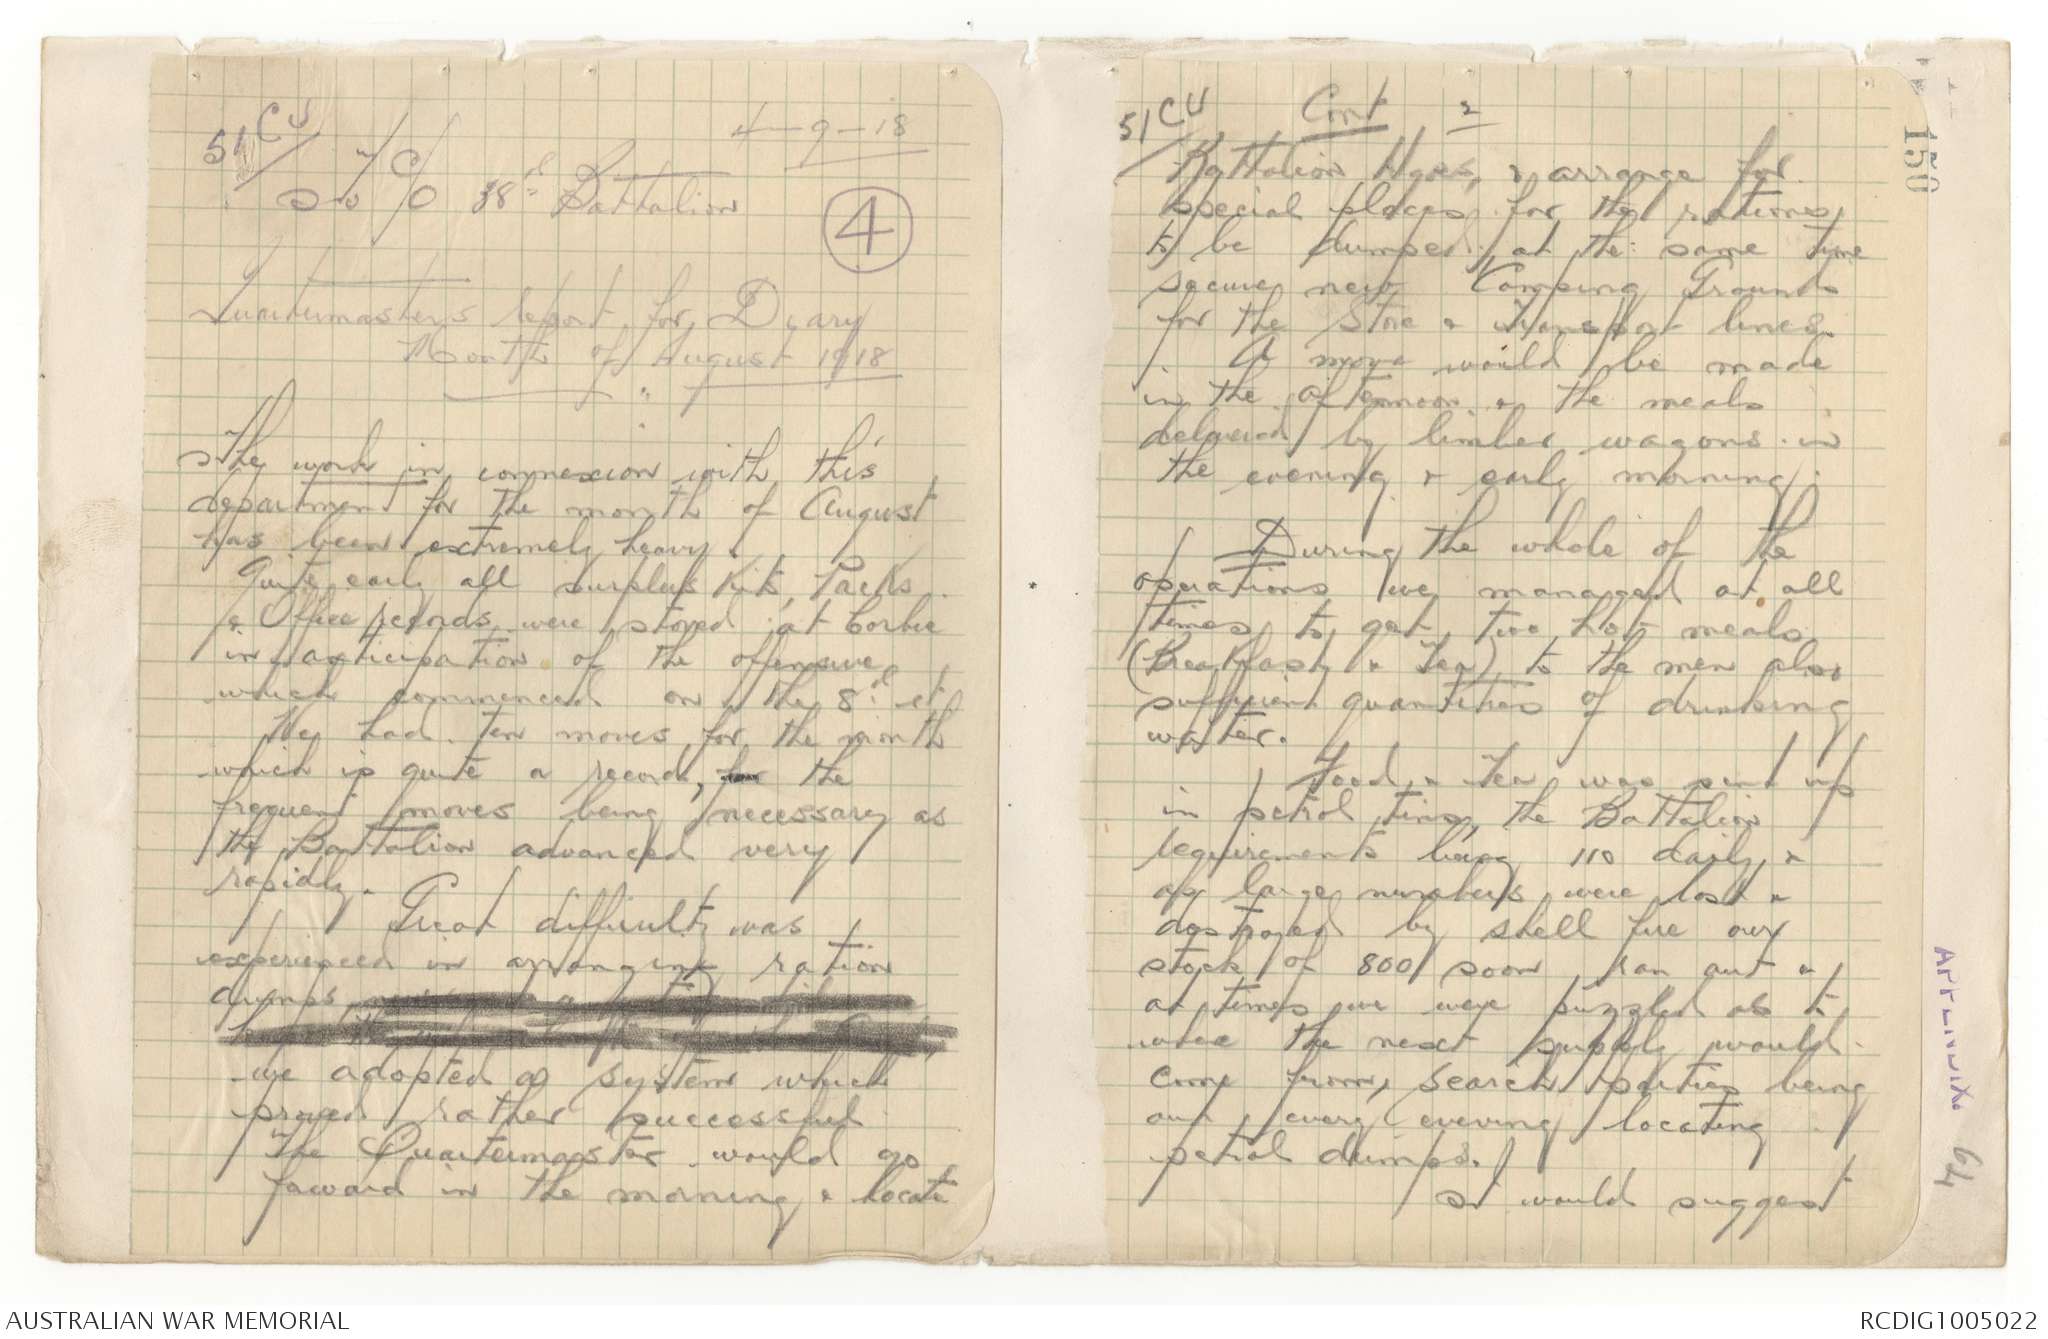 51 CU
4-9-18
38th Battalion
4
Quartermaster's report for Diary
Month of August 1918
The work in connexion with this
department for the month of August
has been extremely heavy.
Quite early all surplus Kits, Packs
& Office records were stored at Corbie
in anticipation of the offensive
which commenced on the 8th
We had ten moves for the month
which is quite a record, the
frequent moves being necessary as
the Battalion advanced very
rapidly.
Great difficulty was
experienced in arranging ration
dumps
we adopted a system which
proved rather successful
The Quartermaster would go
forward in the morning & locate
51 CU
Cont 2
Battalion Hqrs, & arrange for
special places for the rations
to be dumped, at the same time
secure new Camping Grounds
for the Store & Transport lines.
A move would be made
in the afternoon & the meals
delivered by limber wagons in
the evening & early morning.
During the whole of the
operations we managed at all
times to get two hot meals
(Breakfast & Tea) to the men also
sufficient quantities of drinking
water.
Food & Tea was sent up
in petrol tins, the Battalion
requirements being 110 daily, &
as large numbers were lost &
destroyed by shell fire our
stock of 800 soon ran out &
at times we were puzzled as to
where the next supply would
come from, search parties being
out every evening locating
petrol dumps.
I would suggest
150
APPENDIX. 64
AUSTRALIAN WAR MEMORIAL
RCDIG1005022